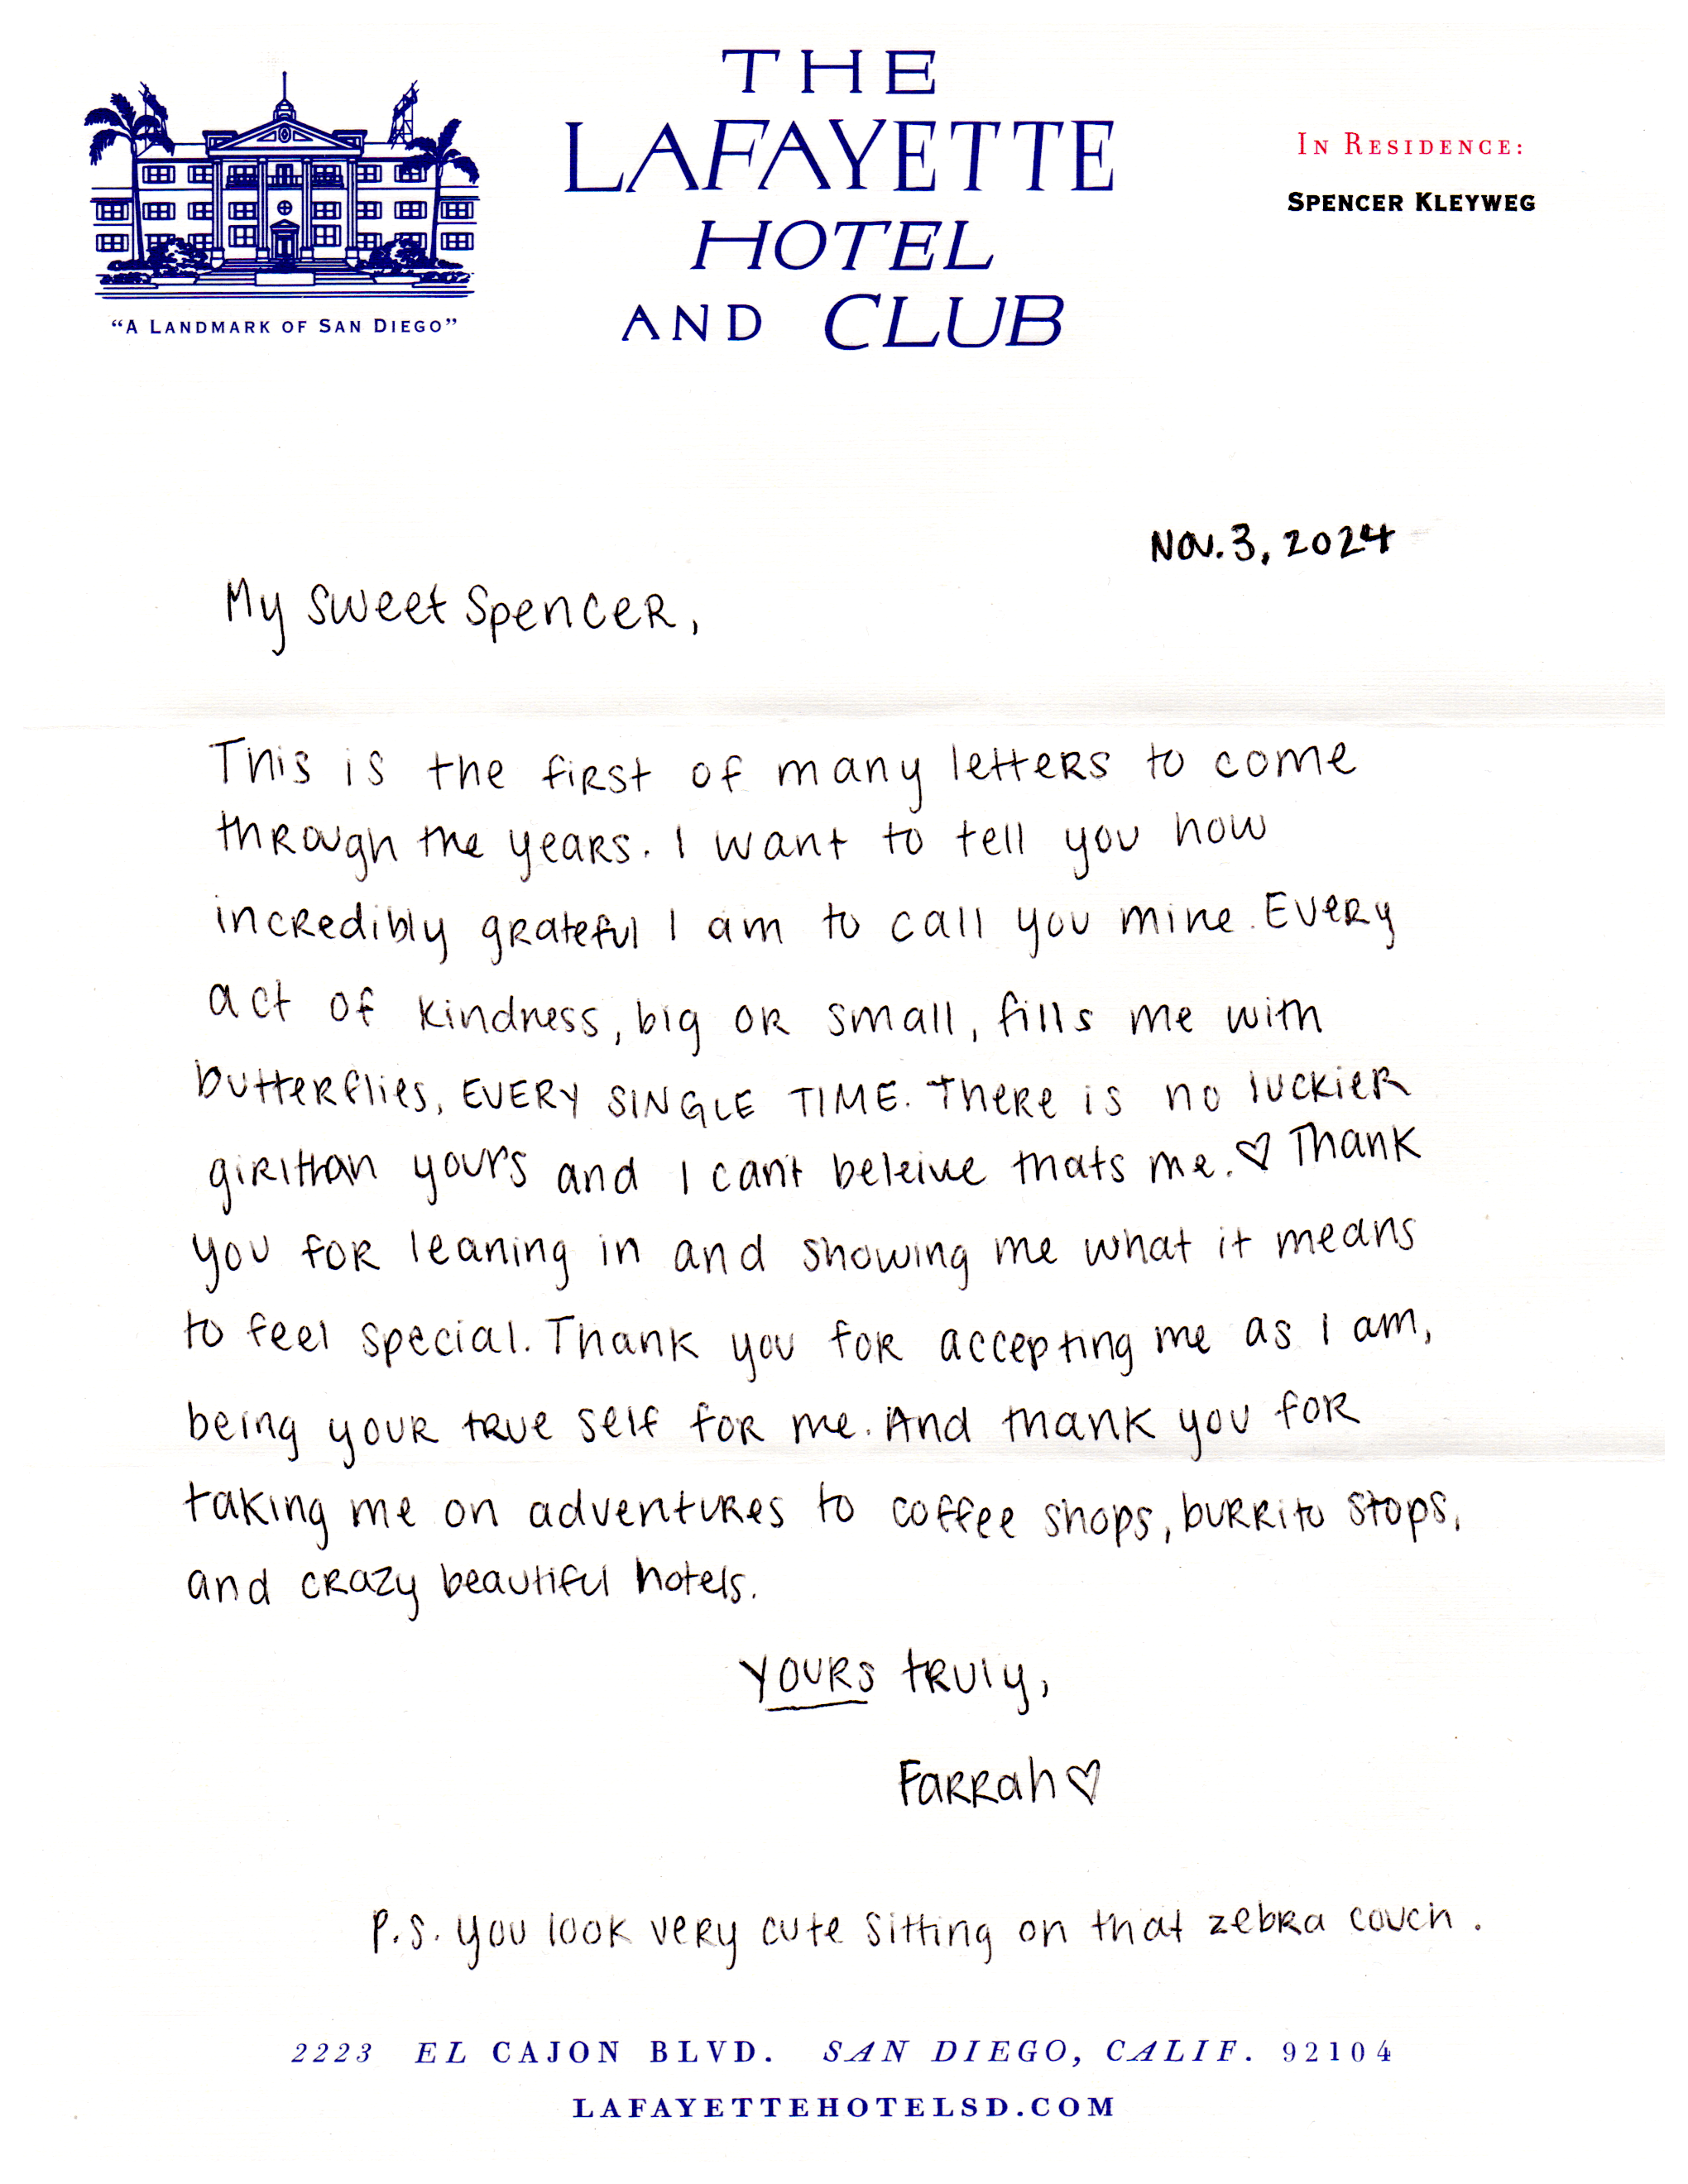 THE
LAFAYETTE
HOTEL
AND CLUB
"A LANDMARK OF SAN DIEGO"
IN RESIDENCE:
SPENCER KLEYWEG
Nov. 3, 2024
My Sweet Spencer,
This is the first of many letters to come
through the years. I want to tell you how
incredibly grateful I am to call you mine. Every
act of kindness, big or small, fills me with
butterflies, EVERY SINGLE TIME. There is no luckier
girl than yours and I can't beleive thats me. ♡ Thank
you for leaning in and showing me what it means
to feel special. Thank you for accepting me as I am,
being your true self for me. And thank you for
taking me on adventures to coffee shops, burrito stops,
and crazy beautiful hotels.
Yours truly,
Farrah ♡
P.S. you look very cute sitting on that zebra couch.
2223 EL CAJON BLVD. SAN DIEGO, CALIF. 92104
LAFAYETTEHOTELSD.COM